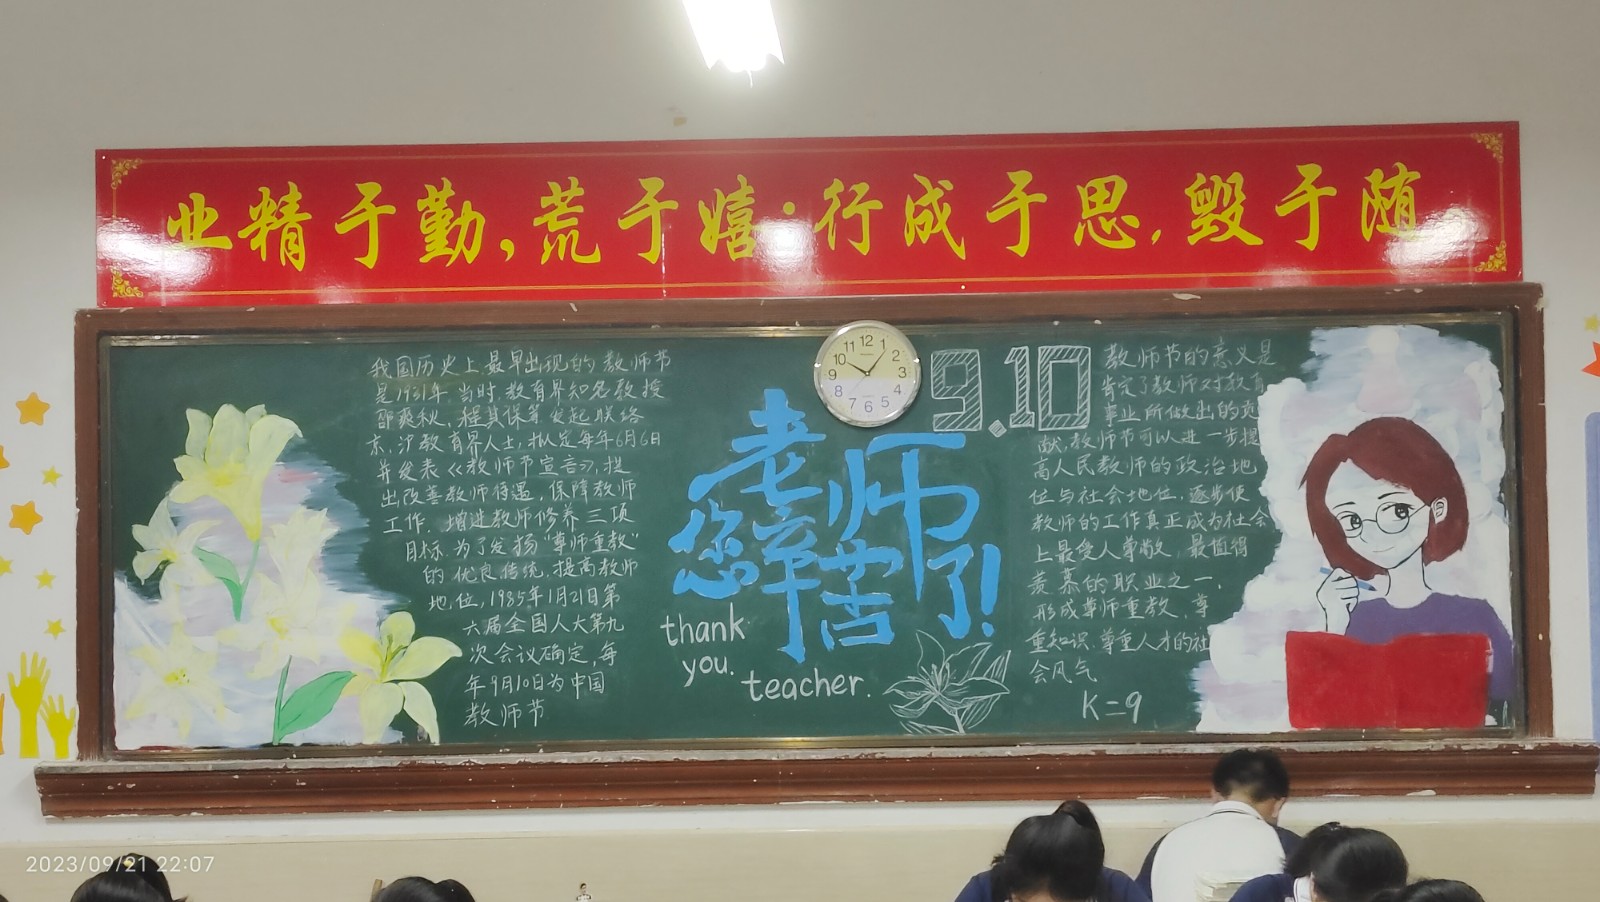 业精于勤,荒于嬉·行成于思,毁于随。
我国历史上最早出现的教师节
是1931年,当时,教育界知名教授
邰爽秋,程其保等发起联络
京、沪教育界人士,拟定每年6月6日
并发表《教师节宣言》,提
出改善教师待遇,保障教师
工作、增进教师修养三项
目标,为了发扬“尊师重教”
的优良传统,提高教师
地位,1985年1月21日第
六届全国人大第九
次会议确定,每
年9月10日为中国
教师节
12
1
2
3
4
5
6
7
8
9
10
11
老师
您辛苦了!
thank
you.
teacher.
9.10
教师节的意义是
肯定了教师对教育
事业所做出的贡
献,教师节可以进一步提
高人民教师的政治地
位与社会地位,逐步使
教师的工作真正成为社会
上最受人尊敬,最值得
羡慕的职业之一,
形成尊师重教、尊
重知识、尊重人才的社
会风气
K=9
2023/09/21 22:07